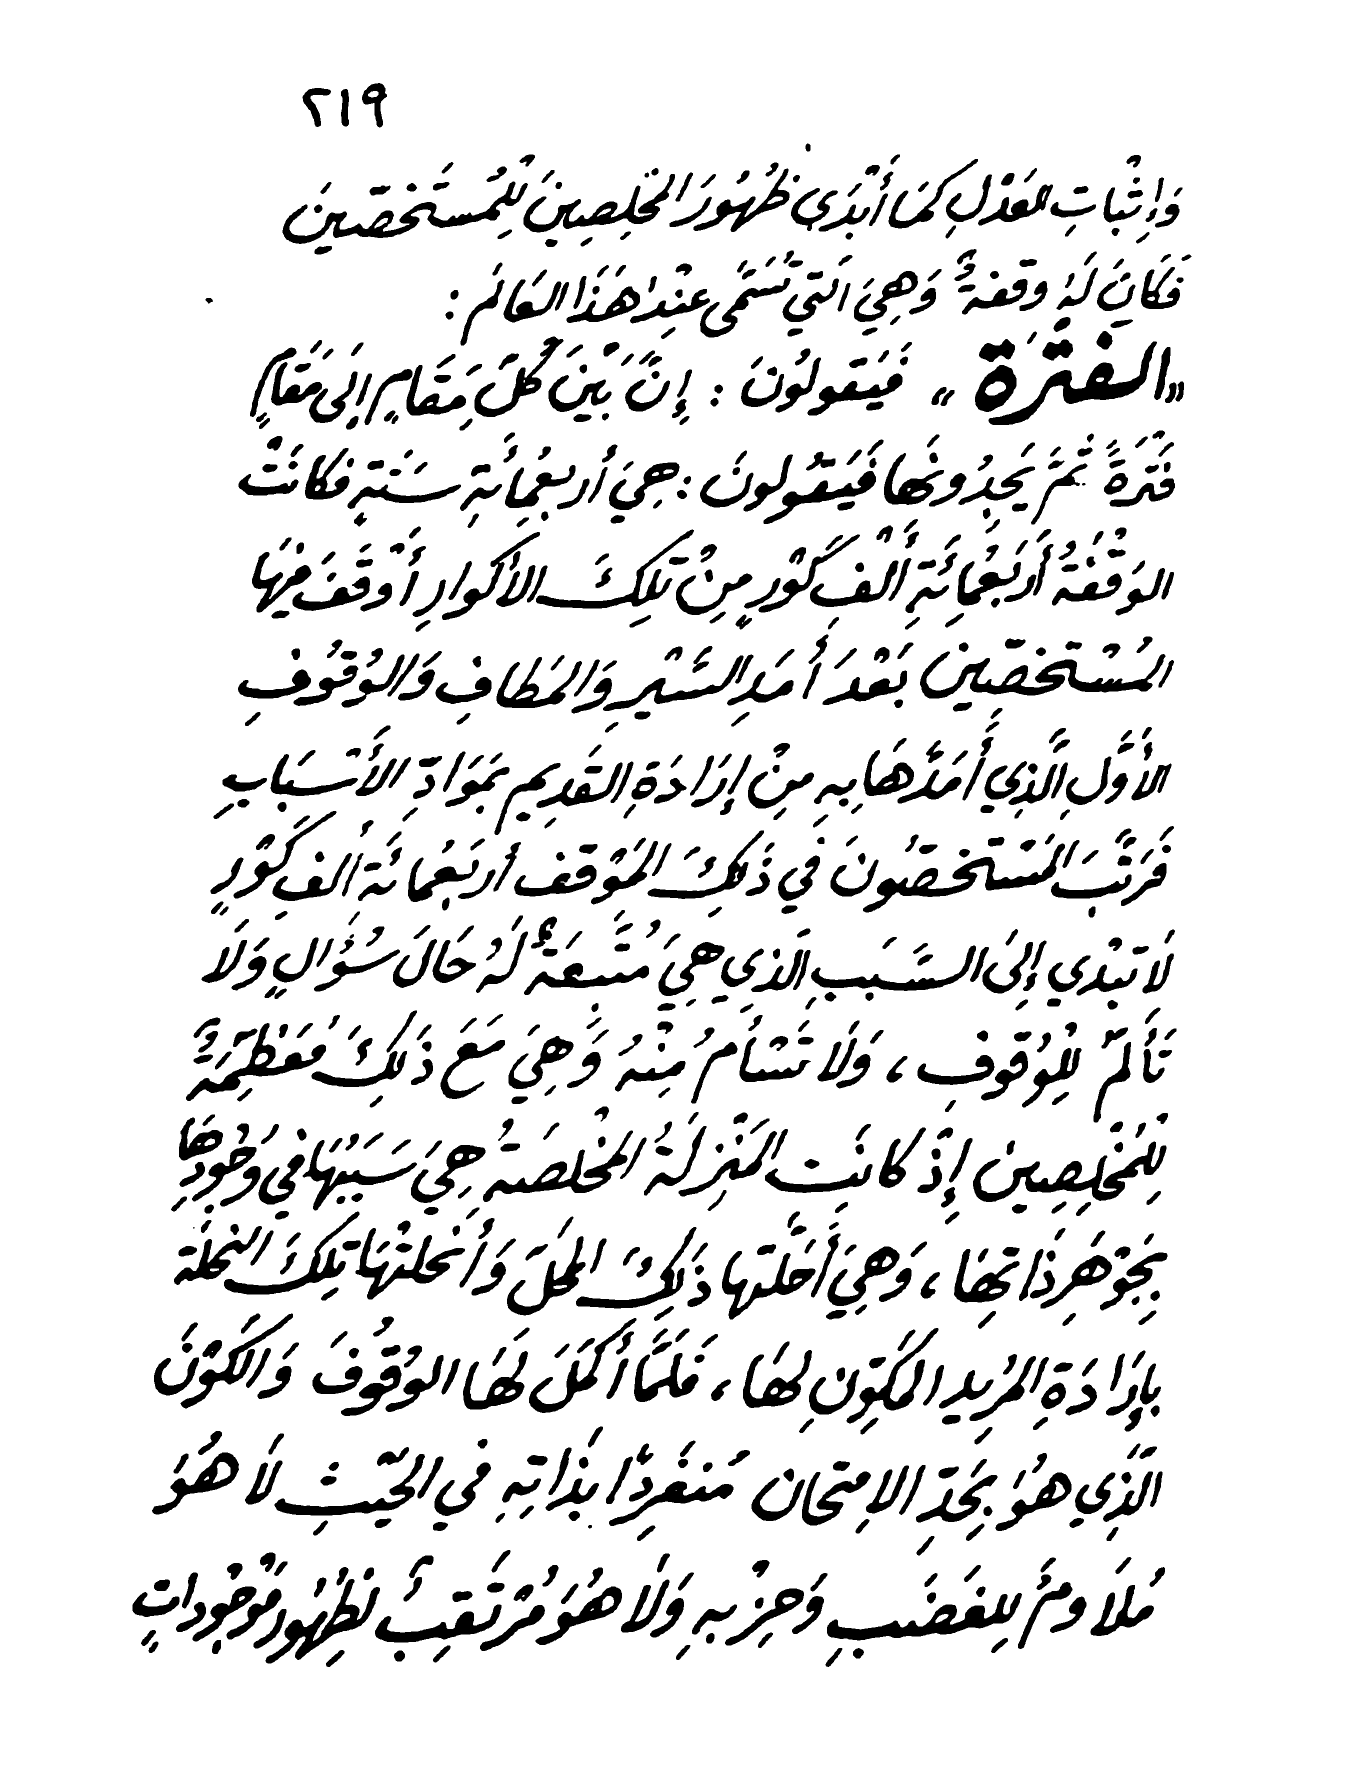 ٢١٩
وَإِثْبَاتِ العَدْلِ كَمَا أَبْدَى ظُهُورَ المُخْلِصِينَ لِلْمُسْتَخصّينَ
فَكَانَ لَهُ وقفةٌ وَهِيَ الَّتي تُسَمَّى عِنْدَ هَذَا العَالَمِ :
«الفترَة» فَيَقولُونَ : إِنَّ بَيْنَ كُلِّ مَقَامٍ إِلَى مَقَامٍ
فَتْرَةً ثُمَّ يَجِدُونَها فَيَقُولونَ : هِيَ أربعُمِائَةِ سَنَةٍ فكانَتْ
الوَقْفَةُ أَرْبَعُمِائَةِ أَلْفِ كَوْرٍ مِنْ تِلكَ الأكوارِ أَوْقَفَ فيهَا
المُسْتَخصّين بَعْدَ أَمَدِ السَّيْرِ وَالمَطافِ وَالوُقوُفِ
الأَوَّلِ الَّذِي أَمَدَّهَا بِهِ مِنْ إِرَادَةِ القَدِيمِ بِمَوَادِّ الأَسْبَابِ
فَرَتَّبَ المُسْتَخصّونَ في ذَلِكَ المَوْقفِ أربَعُمائة أَلفِ كَوْرٍ
لَا تَبْدِي إِلَى السَّبَبِ الَّذِي هِيَ مُتَّبِعَةٌ لَهُ حَالَ سُؤَالٍ وَلَا
تَأَلُّمٍ لِلْوُقوفِ ، وَلَا تَسْأَمُ مِنْهُ وَهِيَ مَعَ ذَلِكَ مُعَظِّمَةٌ
لِلْمُخْلِصِين إِذْ كانَتِ المَنْزِلَةُ المُخْلصَةُ هِيَ سَبَبُهَا في وُجُودِهَا
بِجَوْهَرِ ذَاتِهَا ، وَهِيَ أَحَلَّتْها ذَلِكَ المحَلَّ وَأَنْحلتْهَا تِلكَ النِحْلَة
بإِرَادَةِ المُرِيدِ المكَوِّنِ لهَا ، فَلَمَّا أَكْمَلَ لَهَا الوُقوُفَ وَالكَوْنَ
الَّذِي هُوَ بِحَدِّ الامتحان مُنفَرِدًا بِذَاتِهِ في الحَيْثِ لَا هُوَ
مُلَاومٌ لِلغَضَبِ وَحِزْبِهِ وَلَا هُوَ مُرْتَقِبٌ لظُهُورِ مَوْجوُدَاتٍ